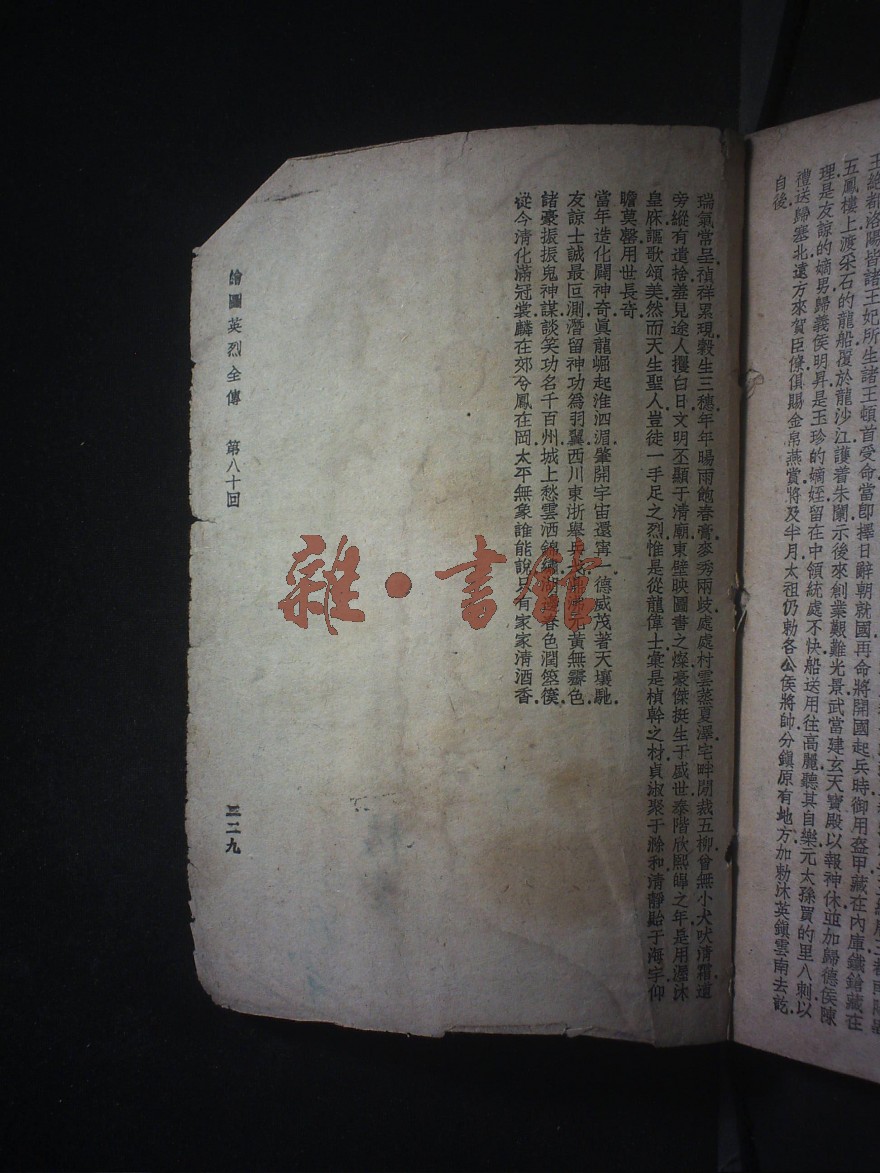 王總都洛陽皆諸王妃所生諸王頓首受命當卽擇日辭朝就國再命將開國起兵時御用盔甲藏在內庫鐵鎗藏在
五鳳樓上渡采石的龍船覆於龍沙江護着朱闌示後來創業艱難光景武當建玄天寶殿以報神休並加歸德侯陳
理是友諒的嫡男歸義侯明昇是玉珍的嫡姪留在中領統處不快船送用往高麗聽其自樂元太孫買的里八剌以
禮送歸塞北遠方來賀臣僚俱賜金帛燕賞將及半月太祖仍勅各公侯將帥分鎮原有地方加勅沐英鎮雲南去訖
自後
瑞氣常呈禎祥累現穀生三穗年年暘雨飽春膏麥秀兩歧處處村雲蒸夏澤宅畔閒裁五柳曾無小犬吠清霜道
旁縱有遺捨羞見途人攫白日文明丕顯于清廟東壁映圖書之燦豪傑挺生于盛世泰階欣熙皞之年是用溼沐
皇庥謳歌頌美然而天生聖人豈徒一手足之烈惟是從龍偉士彙是楨幹之材貞淑聚于滁和清靜貽于海宇仰
瞻莫罄用世長奇
當年造化闢神奇眞龍崛起淮泗湄肇開宇宙還甯一德威茂著天壤馳
友諒士誠最叵測潛留神功爲羽翼西川東浙舉兵元黃無霽色
諸豪振振鬼神謀談笑功名千百州城上愁雲洒春色潤箜篌
從今淸化滿冠裳麟在郊兮鳳在岡太平無象誰能說只有家家清酒香
繪圖英烈全傳 第八十回
三二九
雜·書館